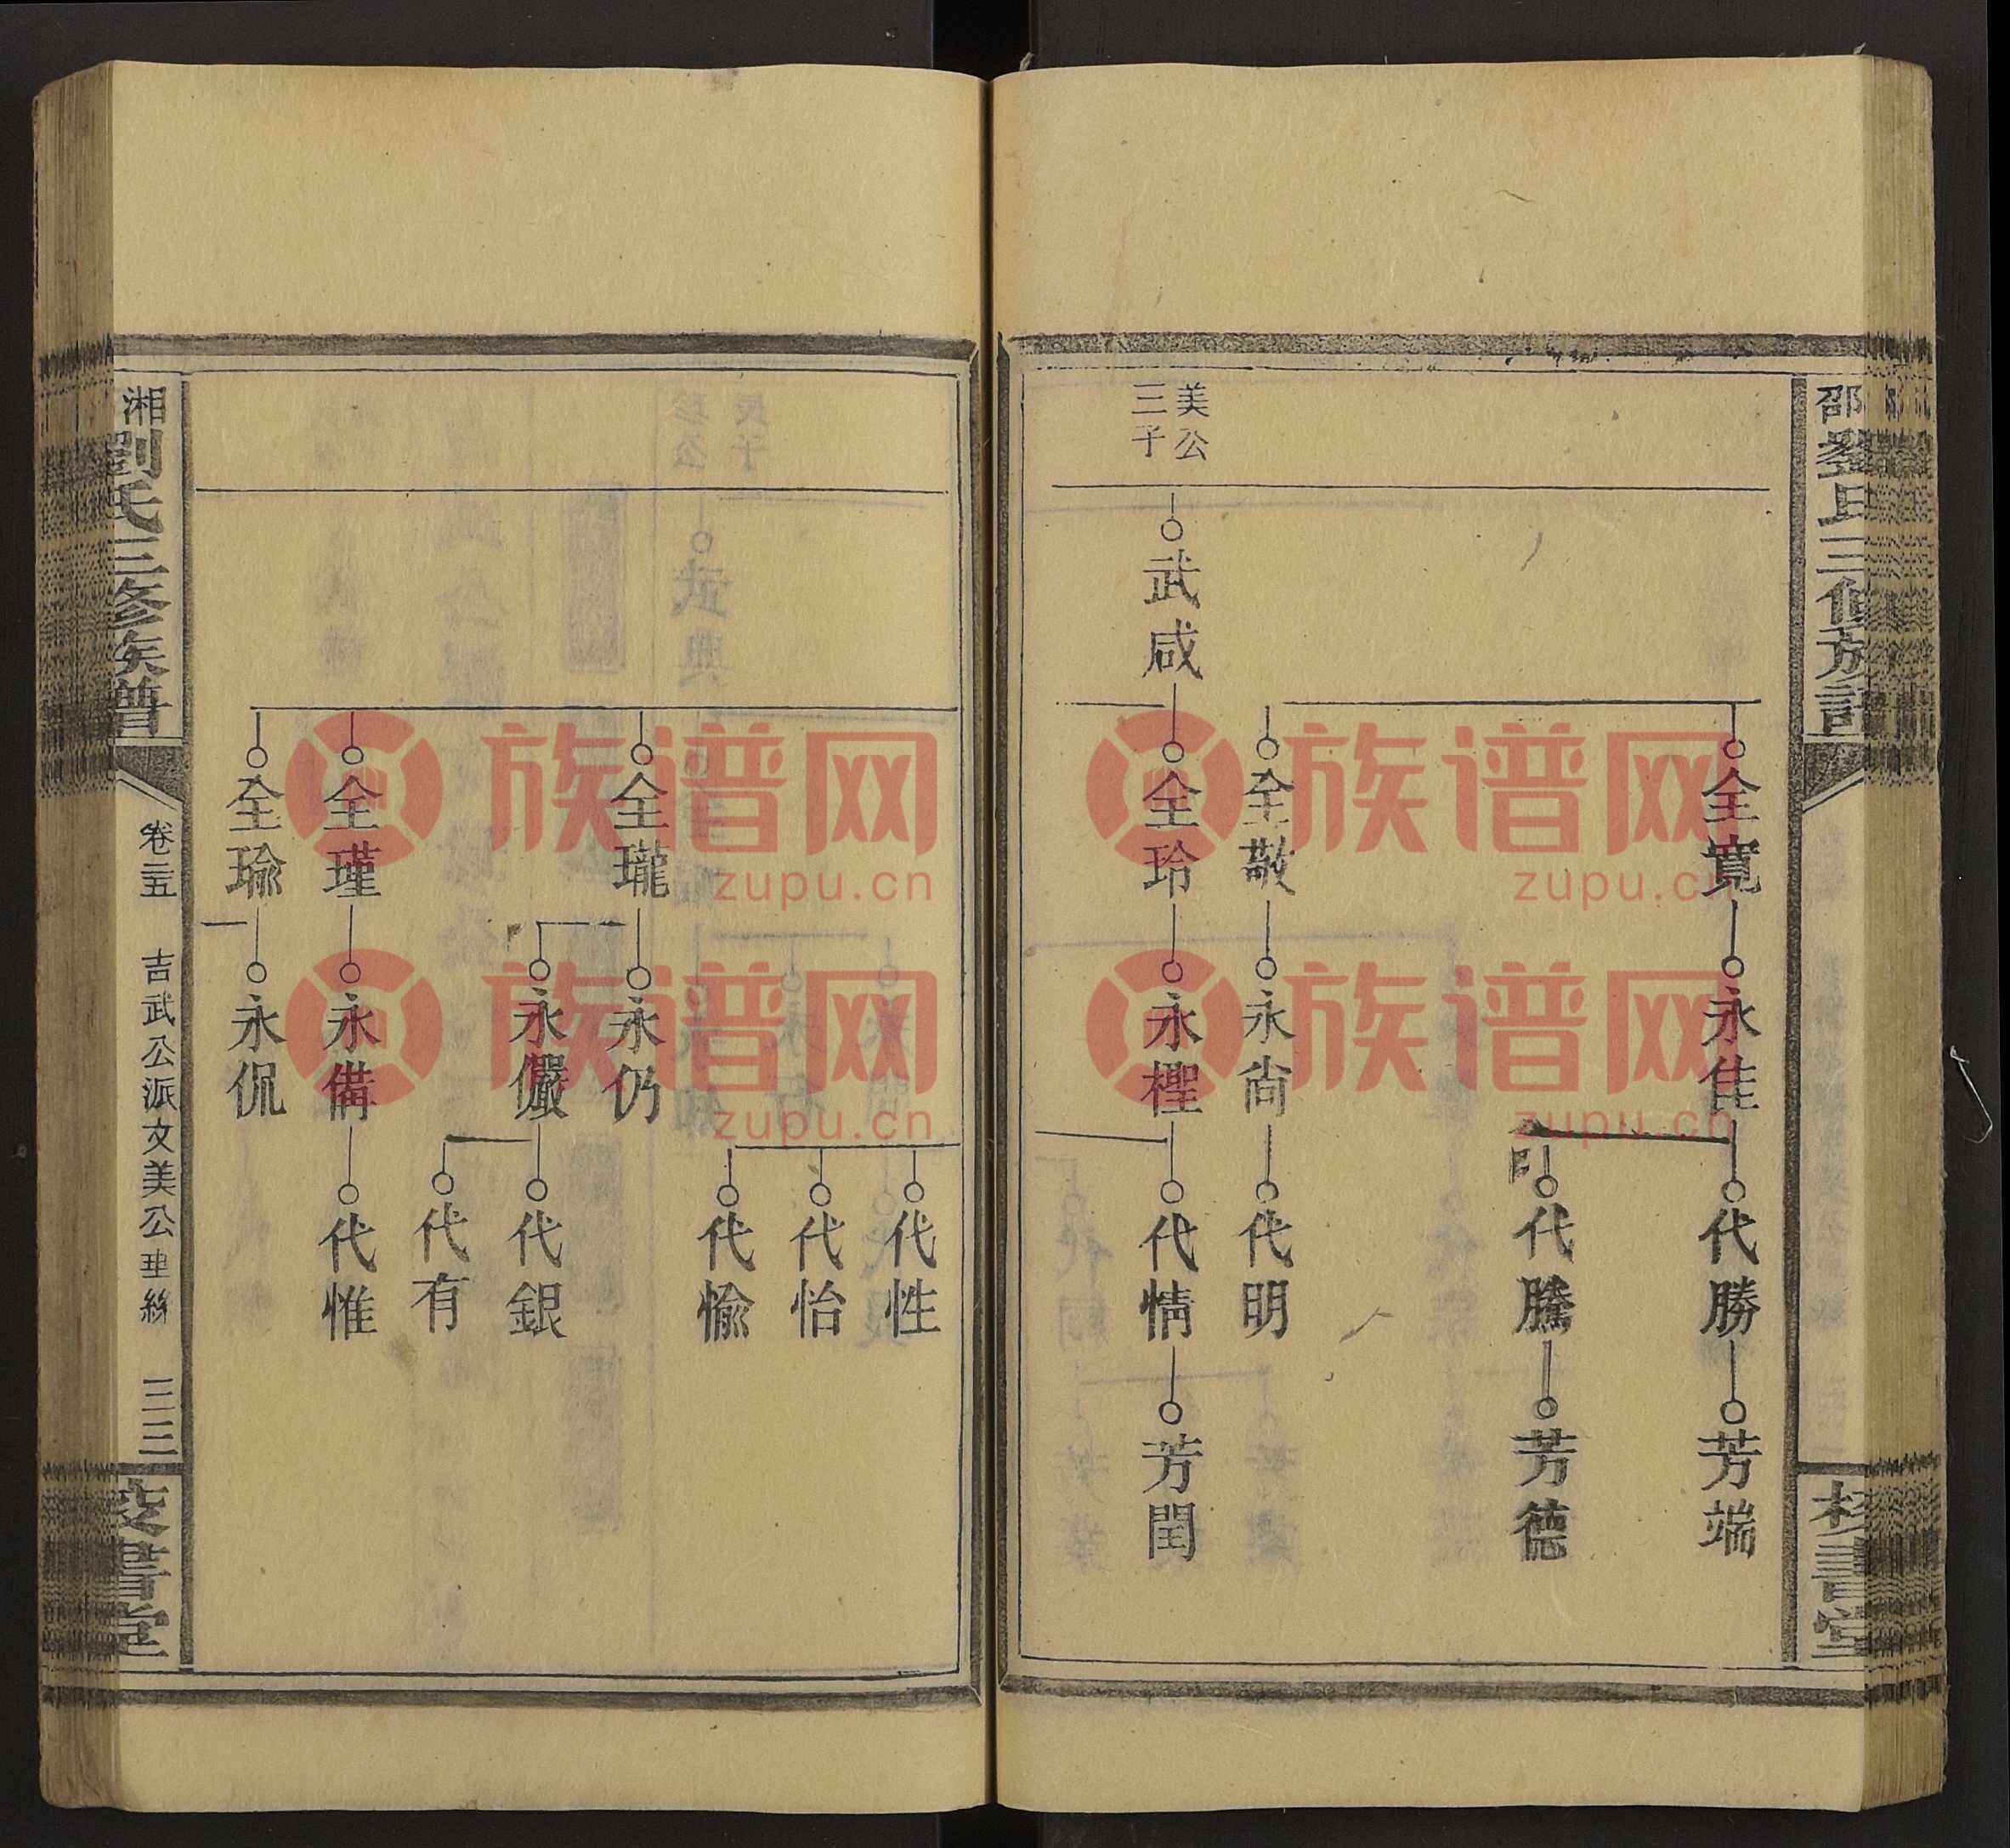 邵劉氏三修族譜
書堂
全寬
永佳
代勝
芳端
代騰
芳德
全敬
永尙
代明
美公
三子
武咸
全玲
永檉
代情
芳閏
代性
代怡
代愉
全瓏
永仍
永儼
代銀
代有
全瑾
永備
代惟
全瑜
永侃
湘劉氏三修族譜
卷三五
吉武公派文美公垂絲
三三
校書堂
族谱网
zupu.cn
族谱网
zupu.cn
族谱网
zupu.cn
族谱网
zupu.cn